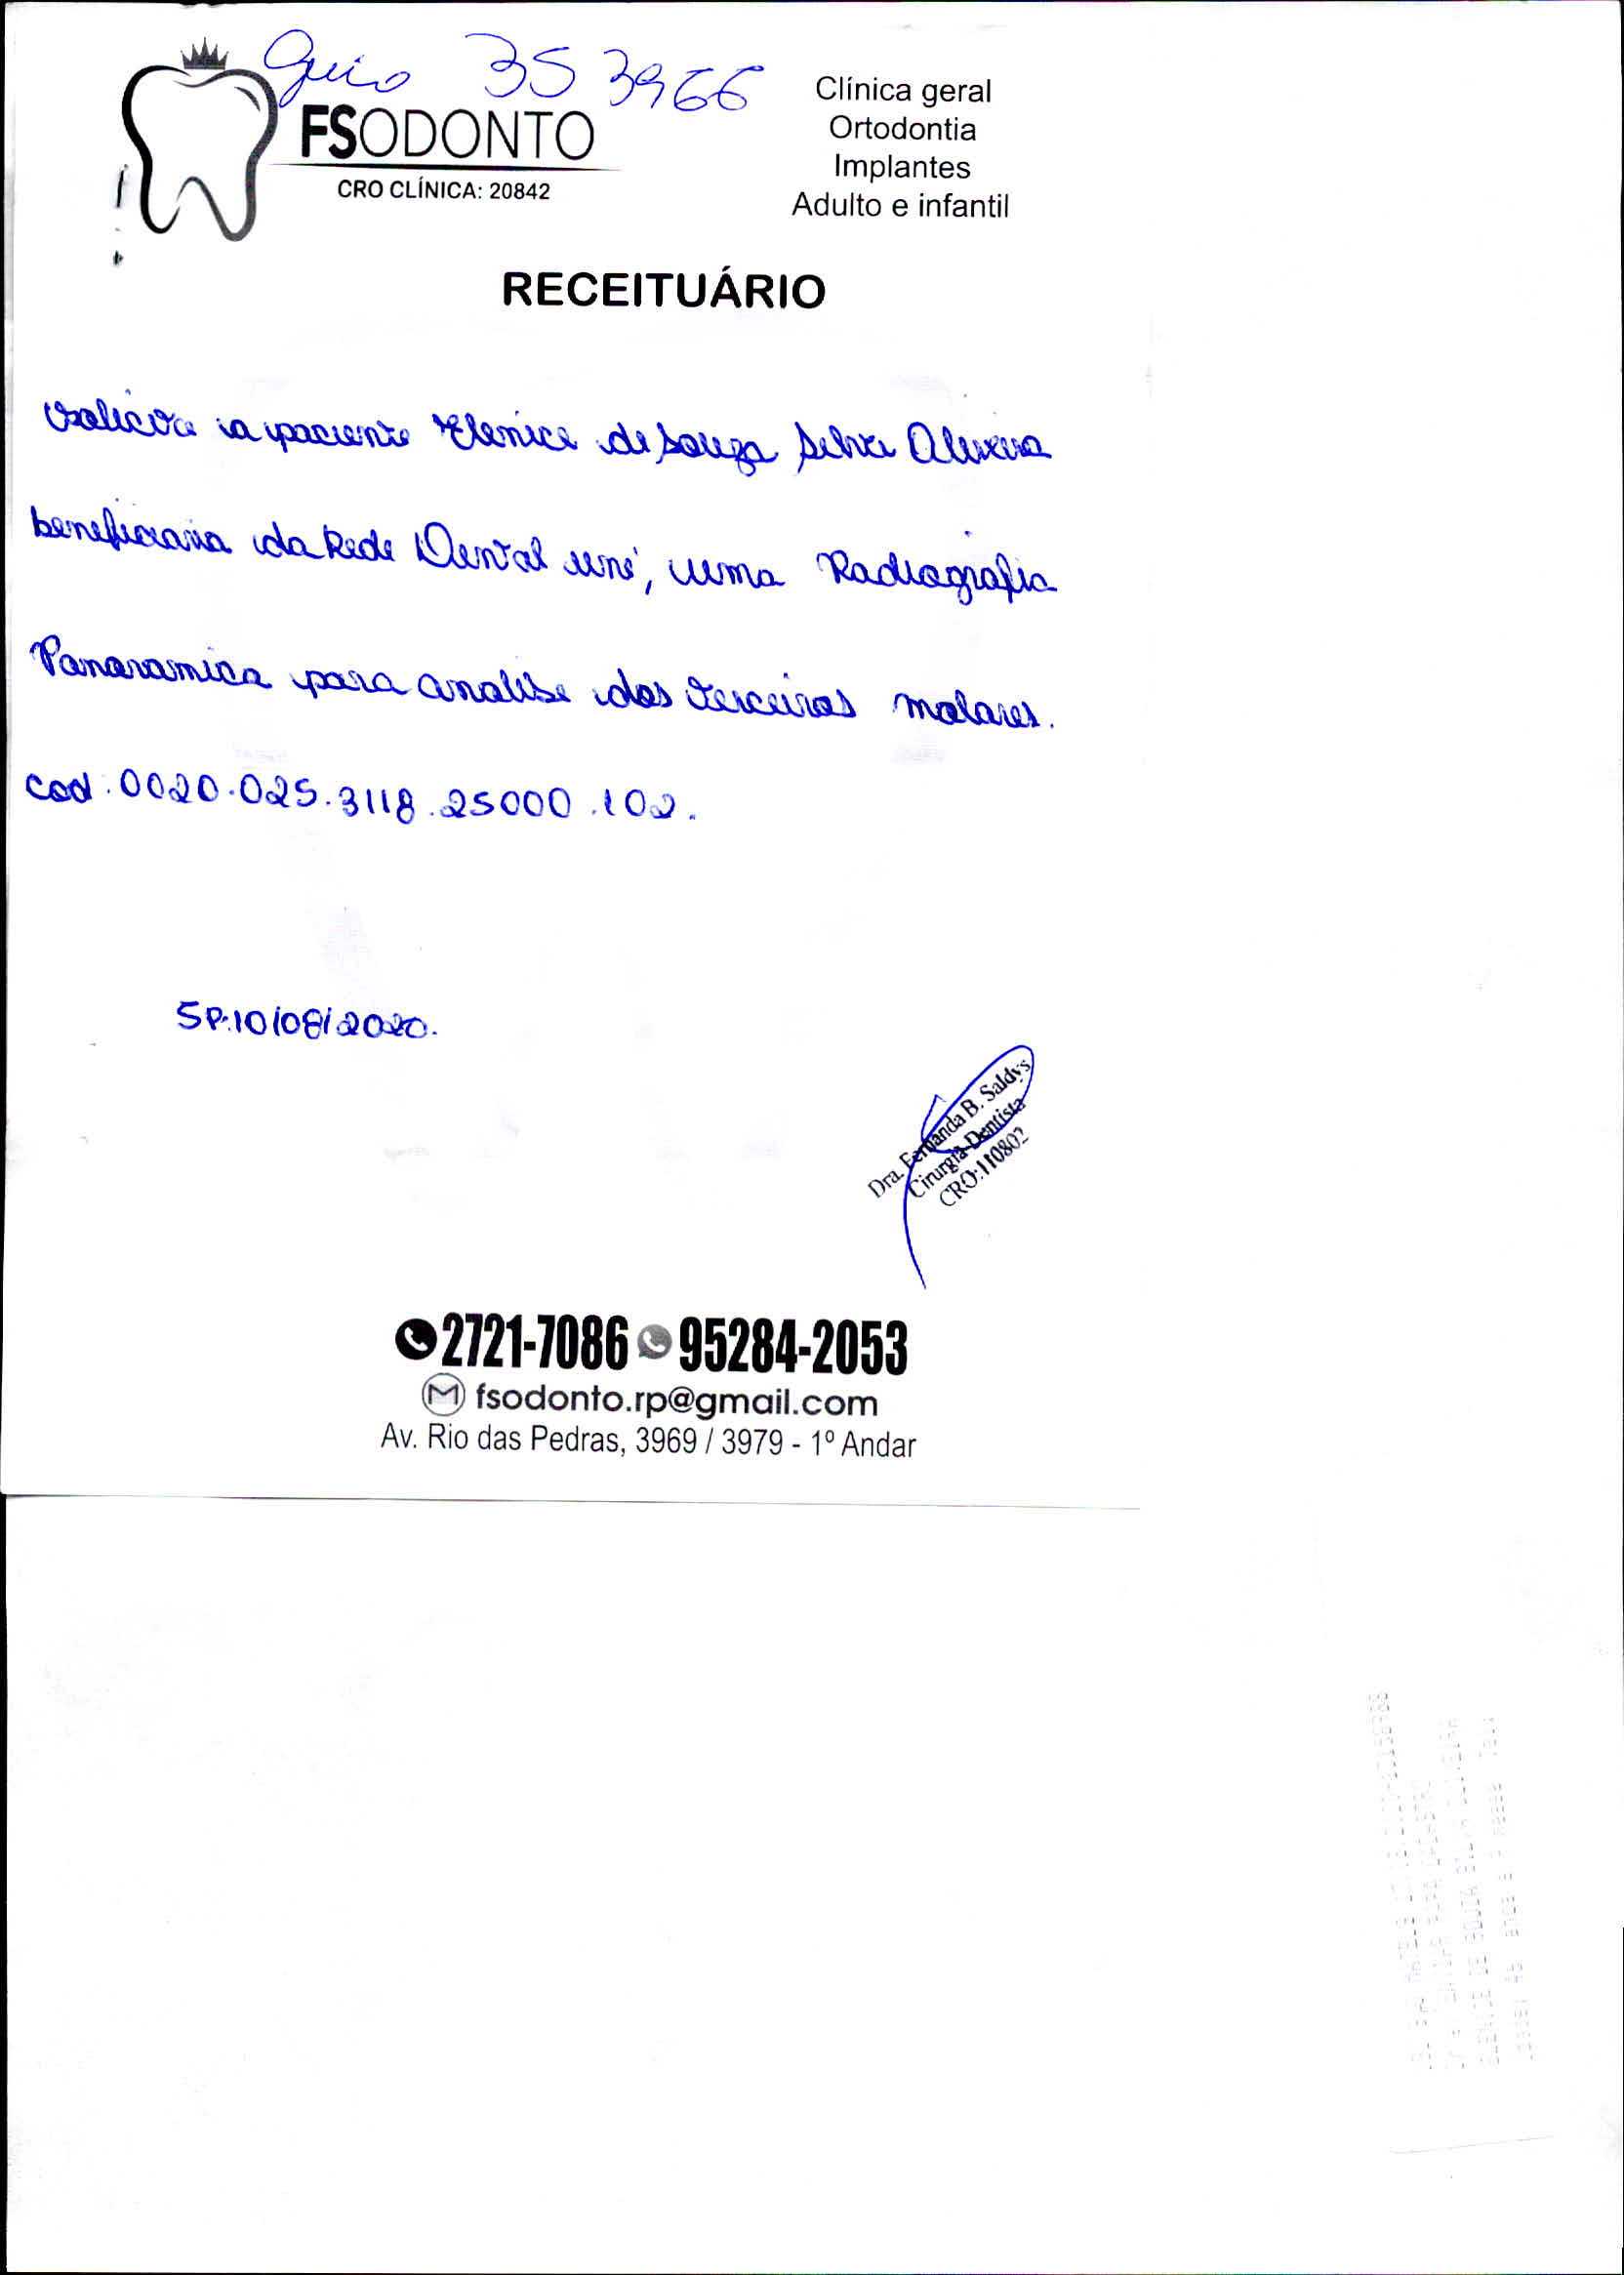 Guia 353966
FSODONTO
CRO CLÍNICA: 20842
Clínica geral
Ortodontia
Implantes
Adulto e infantil
RECEITUÁRIO
Solicito a paciente Elenice de Souza Silva
beneficiaria da Rede Dental uni, uma Radiografia
Panoramica para analise dos terceiros molares.
cod: 0020.025.3118.25000.102.
SP:10/08/2020.
Dra. Fernanda B. Saldys
Cirurgiã Dentista
CRO:110802
2721-7086 95284-2053
fsodonto.rp@gmail.com
Av. Rio das Pedras, 3969 / 3979 - 1º Andar